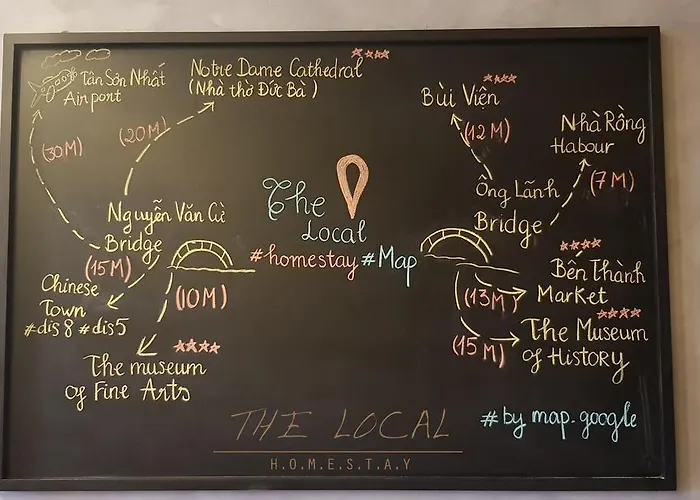 Tân Sơn Nhất
Airport
(30M)
Notre Dame Cathedral ****
(Nhà thờ Đức Bà)
(20M)
Nguyễn Văn Cừ
Bridge
(15M)
Chinese
Town
#dis8 #dis5
(10M)
****
The museum
of Fine Arts
The
Local
#homestay #Map
****
Bùi Viên
(12M)
Nhà Rồng
Habour
(7M)
Ông Lãnh
Bridge
****
Bến Thành
Market
(13M)
****
The Museum
of History
(15M)
#by map.google
THE LOCAL
H.O.M.E.S.T.A.Y